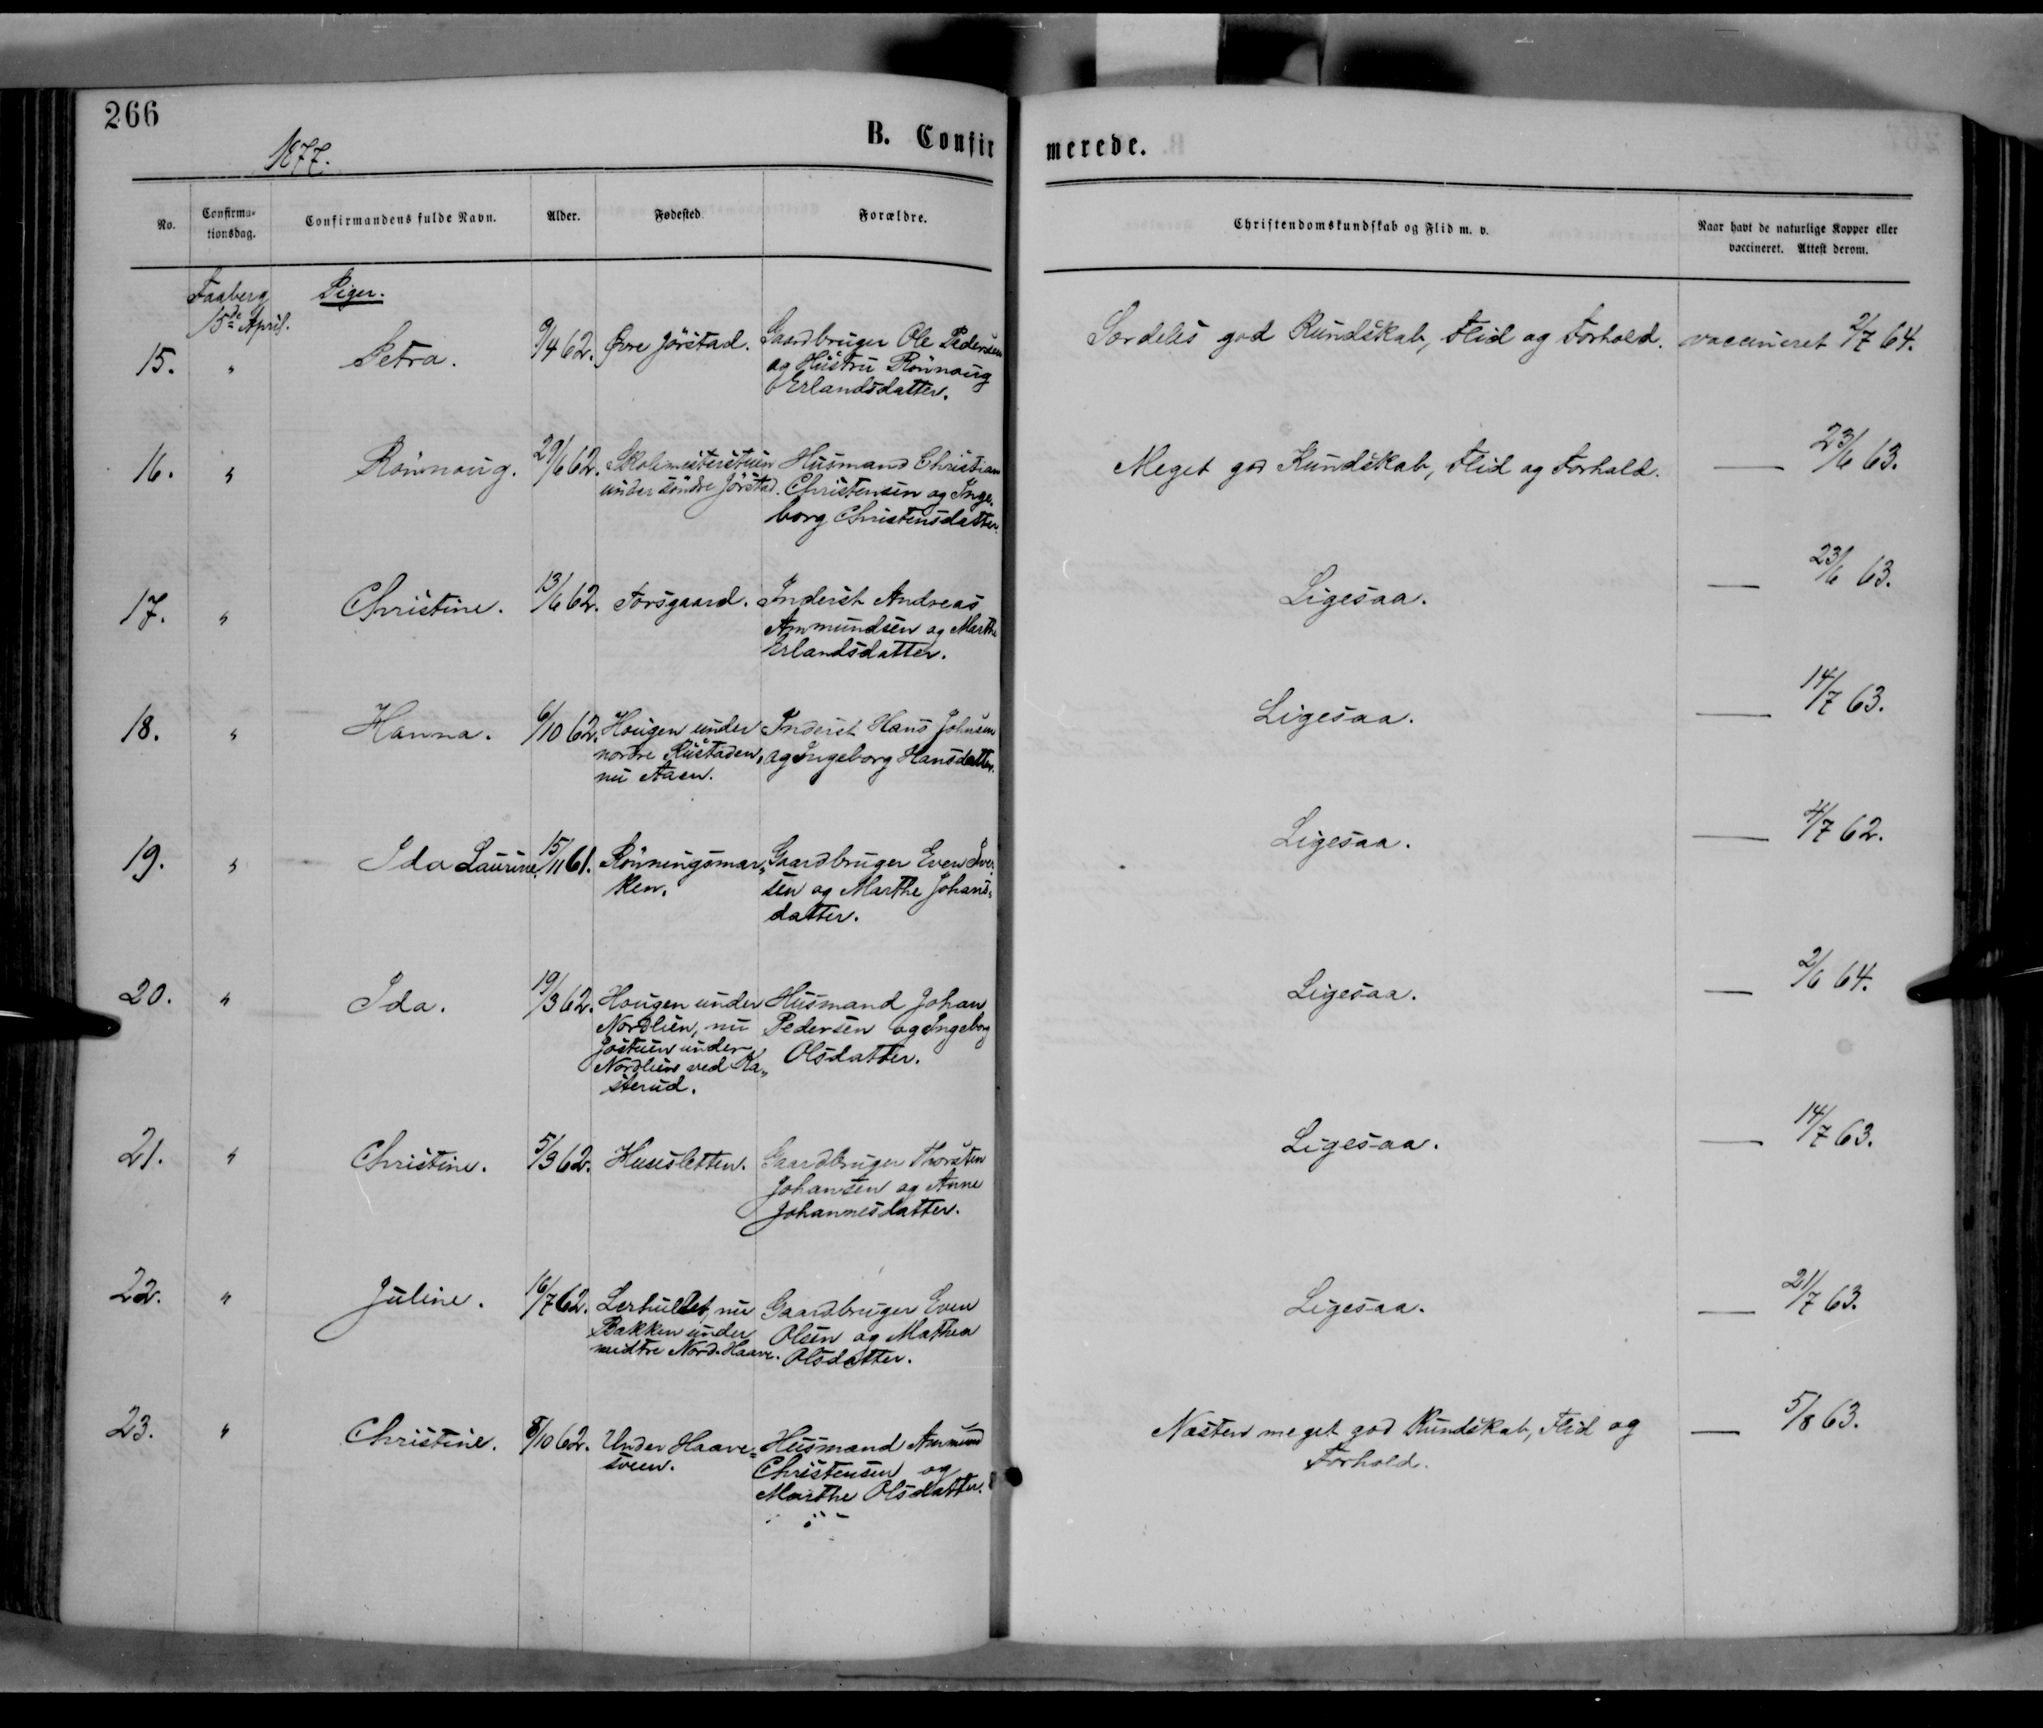 266
1877.
B. Confirmerede.
No.
Confirma-
tionsdag.
Confirmandens fulde Navn.
Alder.
Fødested.
Forældre.
Christendomskundskab og Flid m. v.
Naar havt de naturlige Kopper eller
vaccineret. Attest derom.
Faaberg
15de April.
Piger.
15. " Petra. 9/4 62. Øvre Jörstad. Gaardbruger Ole Pedersen
og Hustru Rönnoug
Erlandsdatter.
Særdeles god Kundskab, Flid og Forhold. vaccineret 2/7 64.
16. " Rönnoug. 29/6 62. Skolemesterstuen
under söndre Jörstad.
Husmand Christian
Christensen og Inge-
borg Christensdatter.
Meget god Kundskab, Flid og Forhold. — 23/6 63.
17. " Christine. 13/6 62. Forsgaard. Inderst Andreas
Ammundsen og Marthe
Erlandsdatter.
Ligesaa. — 23/6 63.
18. " Hanna. 6/10 62. Hougen under
nordre Rustaden,
nu Aaen.
Inderst Hans Johnsen
og Ingeborg Hansdatter.
Ligesaa. — 14/7 63.
19. " Ida Laurine. 15/11 61. Rönningsmar-
ken.
Gaardbruger Even Iver-
sen og Marthe Johans-
datter.
Ligesaa. — 4/7 62.
20. " Ida. 19/3 62. Hougen under
Nordlien, nu
Jostuen under
Nordlien ved Ka-
sterud.
Husmand Johan
Pedersen og Ingeborg
Olsdatter.
Ligesaa. — 2/6 64.
21. " Christine. 5/3 62. Husesletten. Gaardbruger Thorsten
Johansen og Anne
Johannesdatter.
Ligesaa. — 14/7 63.
22. " Juline. 16/7 62. Lerhullet, nu
Bakken under
midtre Nord-Haave.
Gaardbruger Even
Olsen og Mathea
Olsdatter.
Ligesaa. — 21/7 63.
23. " Christine. 8/10 62. Under Haave-
sveen.
Husmand Ammund
Christensen og
Marthe Olsdatter.
Næsten meget god Kundskab, Flid og
Forhold.
— 5/8 63.